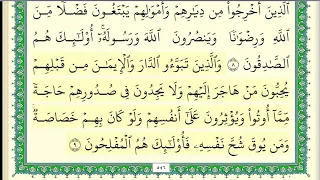 ٱلَّذِينَ أُخْرِجُوا۟ مِن دِيَٰرِهِمْ وَأَمْوَٰلِهِمْ يَبْتَغُونَ فَضْلًا مِّنَ
ٱللَّهِ وَرِضْوَٰنًا وَيَنصُرُونَ ٱللَّهَ وَرَسُولَهُۥٓ أُو۟لَٰٓئِكَ هُمُ
ٱلصَّٰدِقُونَ ٨ وَٱلَّذِينَ تَبَوَّءُو ٱلدَّارَ وَٱلْإِيمَٰنَ مِن قَبْلِهِمْ
يُحِبُّونَ مَنْ هَاجَرَ إِلَيْهِمْ وَلَا يَجِدُونَ فِى صُدُورِهِمْ حَاجَةً
مِّمَّآ أُوتُوا۟ وَيُؤْثِرُونَ عَلَىٰٓ أَنفُسِهِمْ وَلَوْ كَانَ بِهِمْ خَصَاصَةٌ
وَمَن يُوقَ شُحَّ نَفْسِهِۦ فَأُو۟لَٰٓئِكَ هُمُ ٱلْمُفْلِحُونَ ٩
٥٤٦